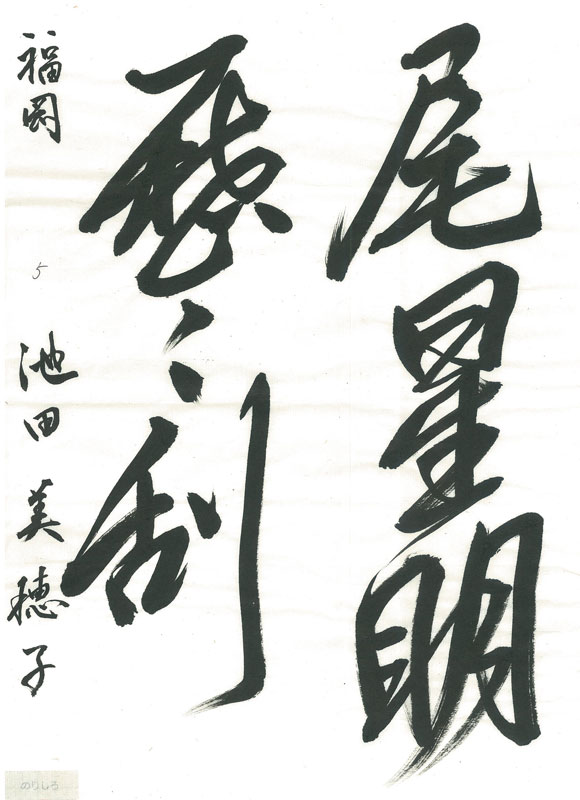 尾星明
歴々刮
福岡 5 池田美穂子
のりしろ